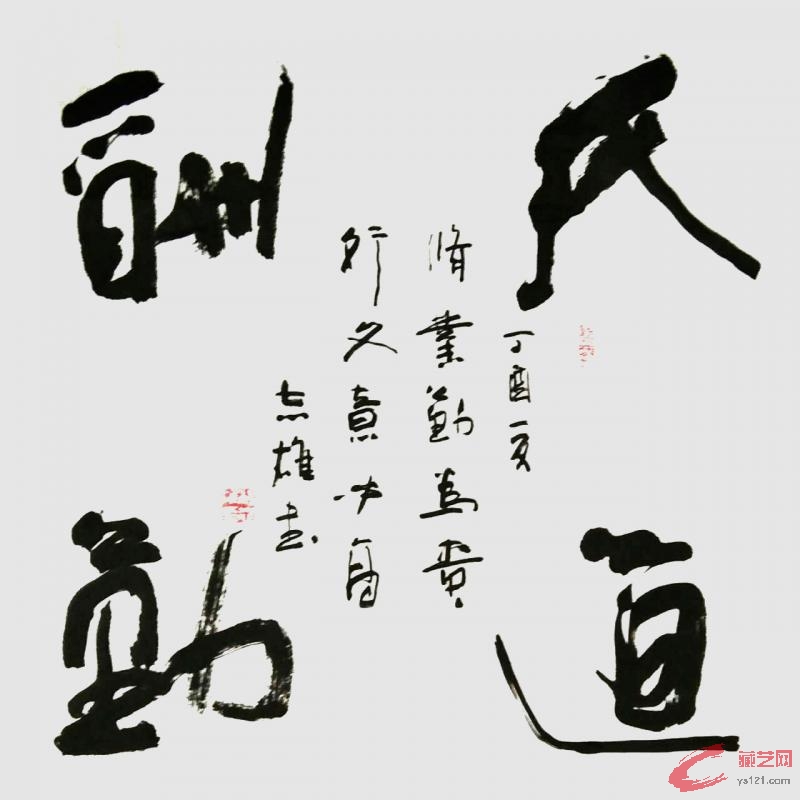 天道
酬勤
丁酉夏
脩業勤為貴
行文意必高
志雄書
藏艺网
ys121.com